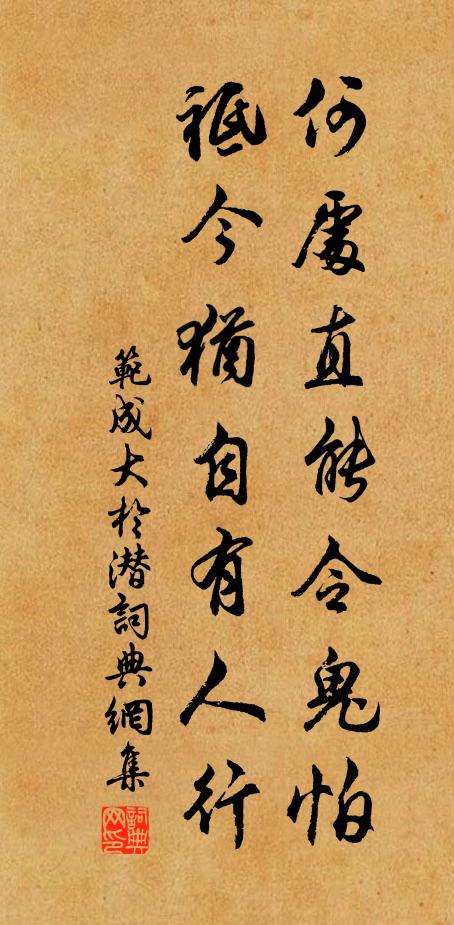 何處直能令鬼怕
祗今猶自有人行
範成大於潛詞典網集
詞典網印